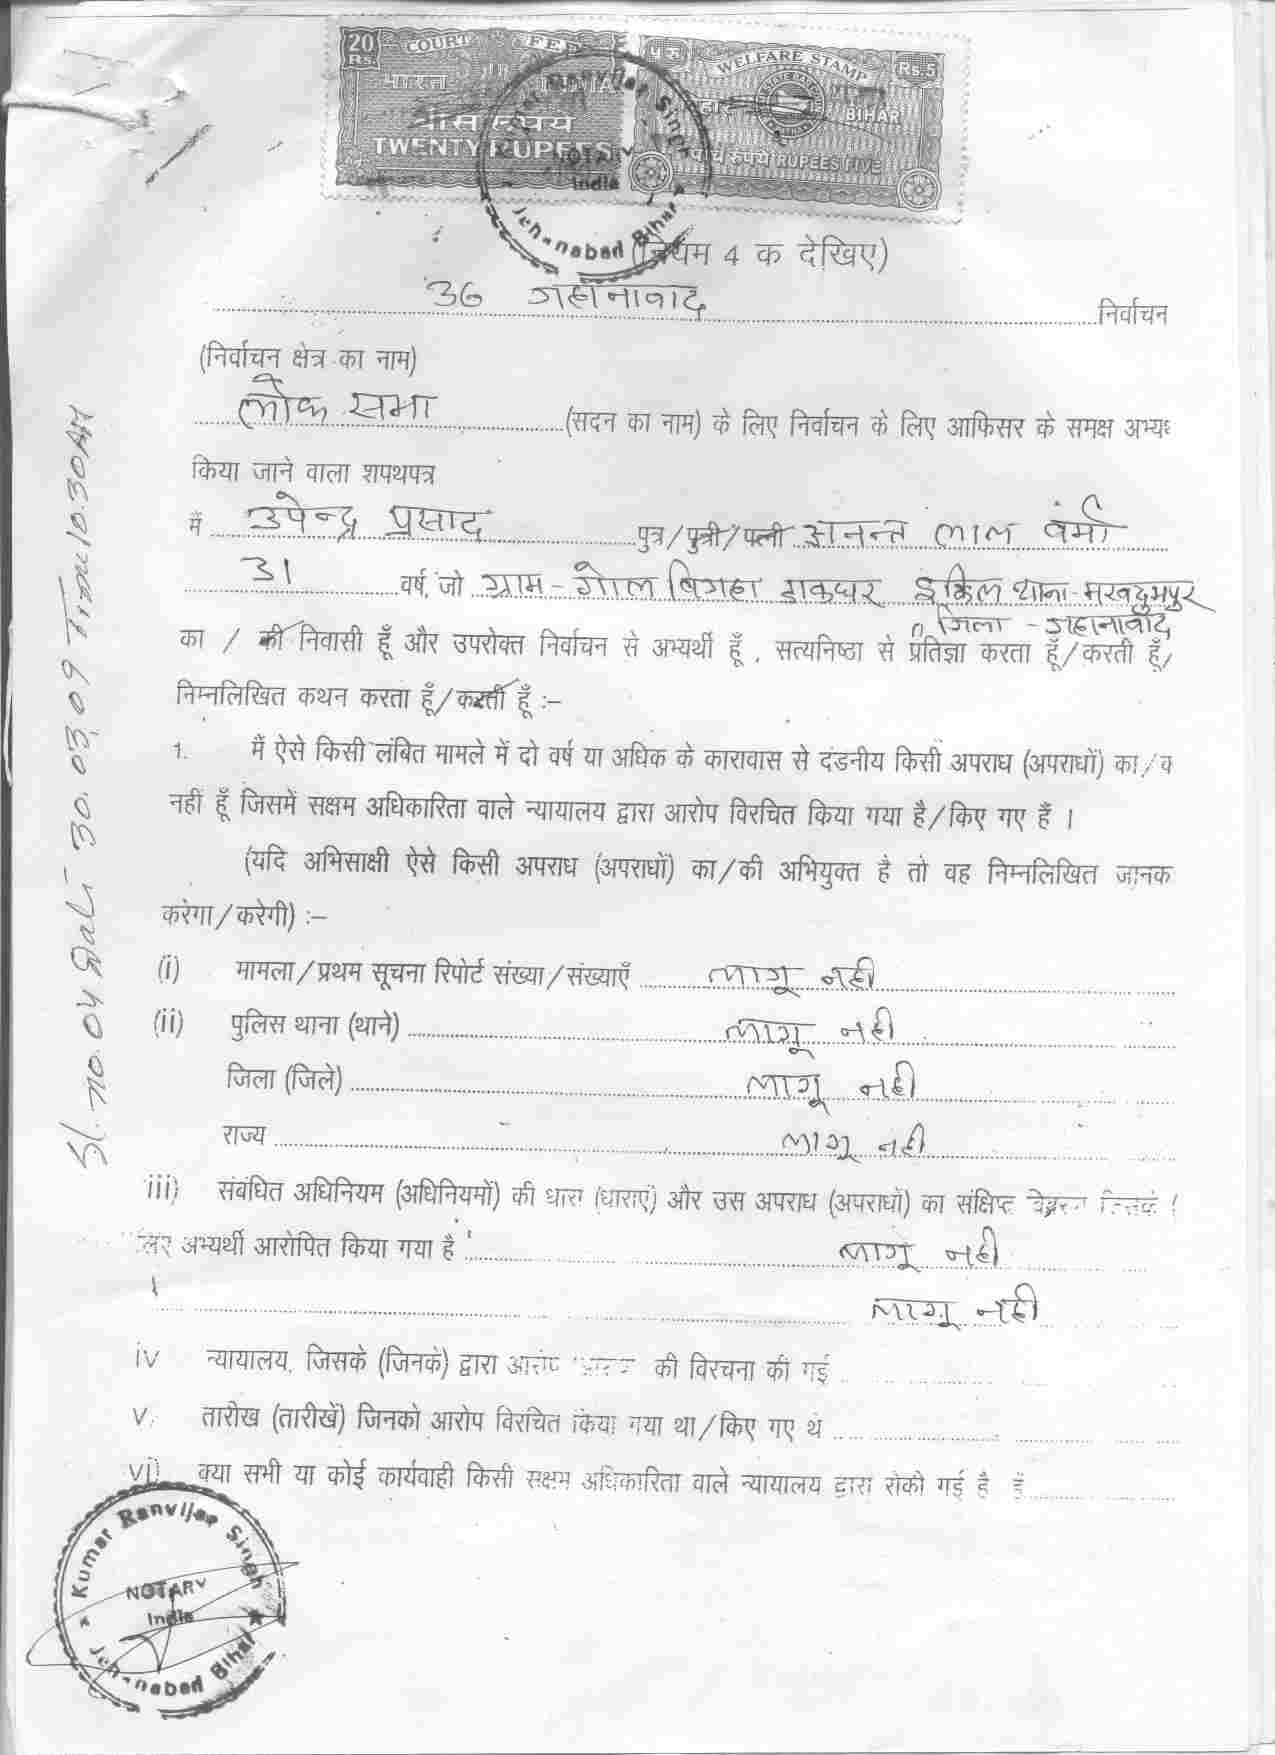 20 Rs. COURT FEE भारत INDIA बीस रुपये TWENTY RUPEES
WELFARE STAMP Rs.5 BIHAR पांच रुपये RUPEES FIVE
Ranvijay Singh NOTARY India Jehanabad Bihar
(नियम 4 क देखिए)
36 जहानावाद निर्वाचन
(निर्वाचन क्षेत्र का नाम)
लोक सभा (सदन का नाम) के लिए निर्वाचन के लिए आफिसर के समक्ष अभ्यर्थ
किया जाने वाला शपथपत्र
मैं उपेन्द्र प्रसाद पुत्र/पुत्री/पत्नी अनन्त लाल वर्मा
31 वर्ष, जो ग्राम - गोल विगहा डाकघर इक्किल थाना - मखदुमपुर
जिला - जहानावाद
का / की निवासी हूँ और उपरोक्त निर्वाचन से अभ्यर्थी हूँ, सत्यनिष्ठा से प्रतिज्ञा करता हूँ/करती हूँ/
निम्नलिखित कथन करता हूँ/करती हूँ :-
1. मैं ऐसे किसी लंबित मामले में दो वर्ष या अधिक के कारावास से दंडनीय किसी अपराध (अपराधों) का/व
नहीं हूँ जिसमें सक्षम अधिकारिता वाले न्यायालय द्वारा आरोप विरचित किया गया है/किए गए हैं ।
(यदि अभिसाक्षी ऐसे किसी अपराध (अपराधों) का/की अभियुक्त है तो वह निम्नलिखित जानक
करेगा/करेगी) :-
(i) मामला/प्रथम सूचना रिपोर्ट संख्या/संख्याएँ लागू नही
(ii) पुलिस थाना (थाने) लागू नही
जिला (जिले) लागू नही
राज्य लागू नही
iii) संबंधित अधिनियम (अधिनियमों) की धारा (धाराएं) और उस अपराध (अपराधों) का संक्षिप्त
लिए अभ्यर्थी आरोपित किया गया है लागू नही
लागू नही
iv न्यायालय, जिसके (जिनके) द्वारा आरोप की विरचना की गई
v. तारीख (तारीखें) जिनको आरोप विरचित किया गया था/किए गए थे
vi) क्या सभी या कोई कार्यवाही किसी सक्षम अधिकारिता वाले न्यायालय द्वारा रोकी गई है हैं
Kumar Ranvijay Singh NOTARY India Jehanabad Bihar
Sl. no. 04 Dat 30.03.09 Time 10.30 AM